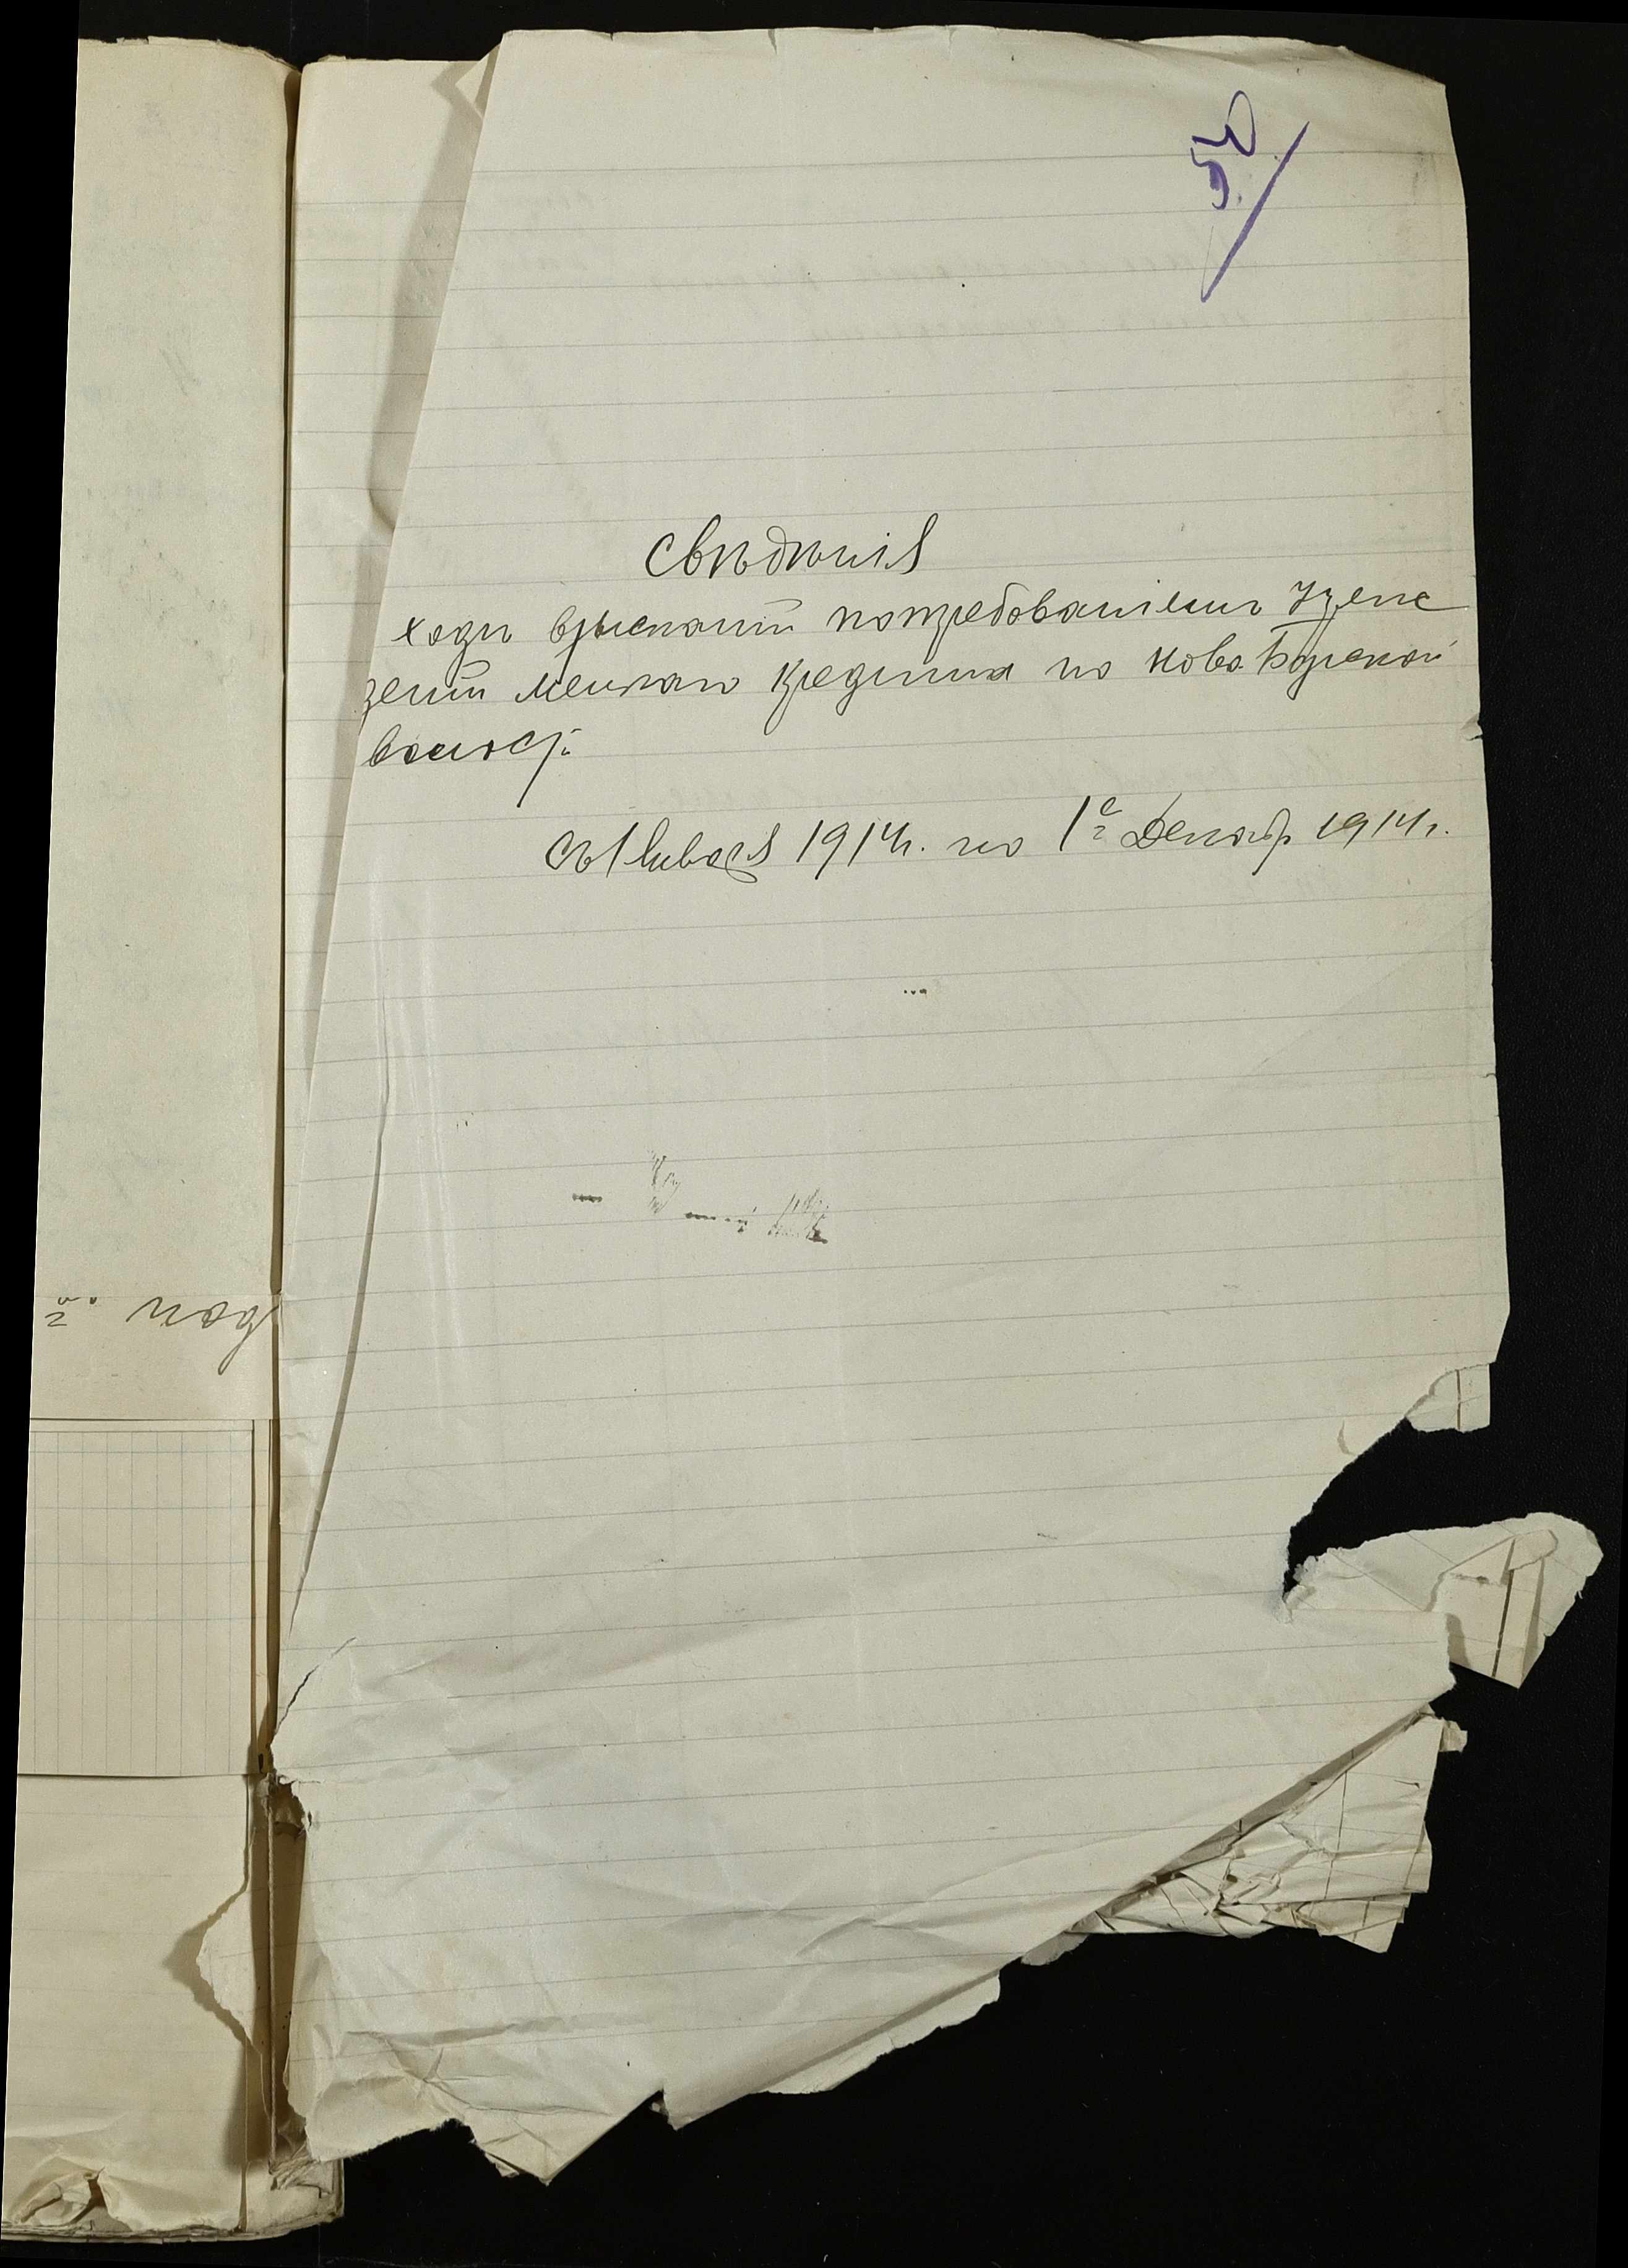 Свѣдѣнія
ходѣ взысканій по требованіямъ Учреж
деній мелкаго кредита по Ново Борской
волост.
съ 1 Января 1914 г. по 1е Декабр 1914 г.